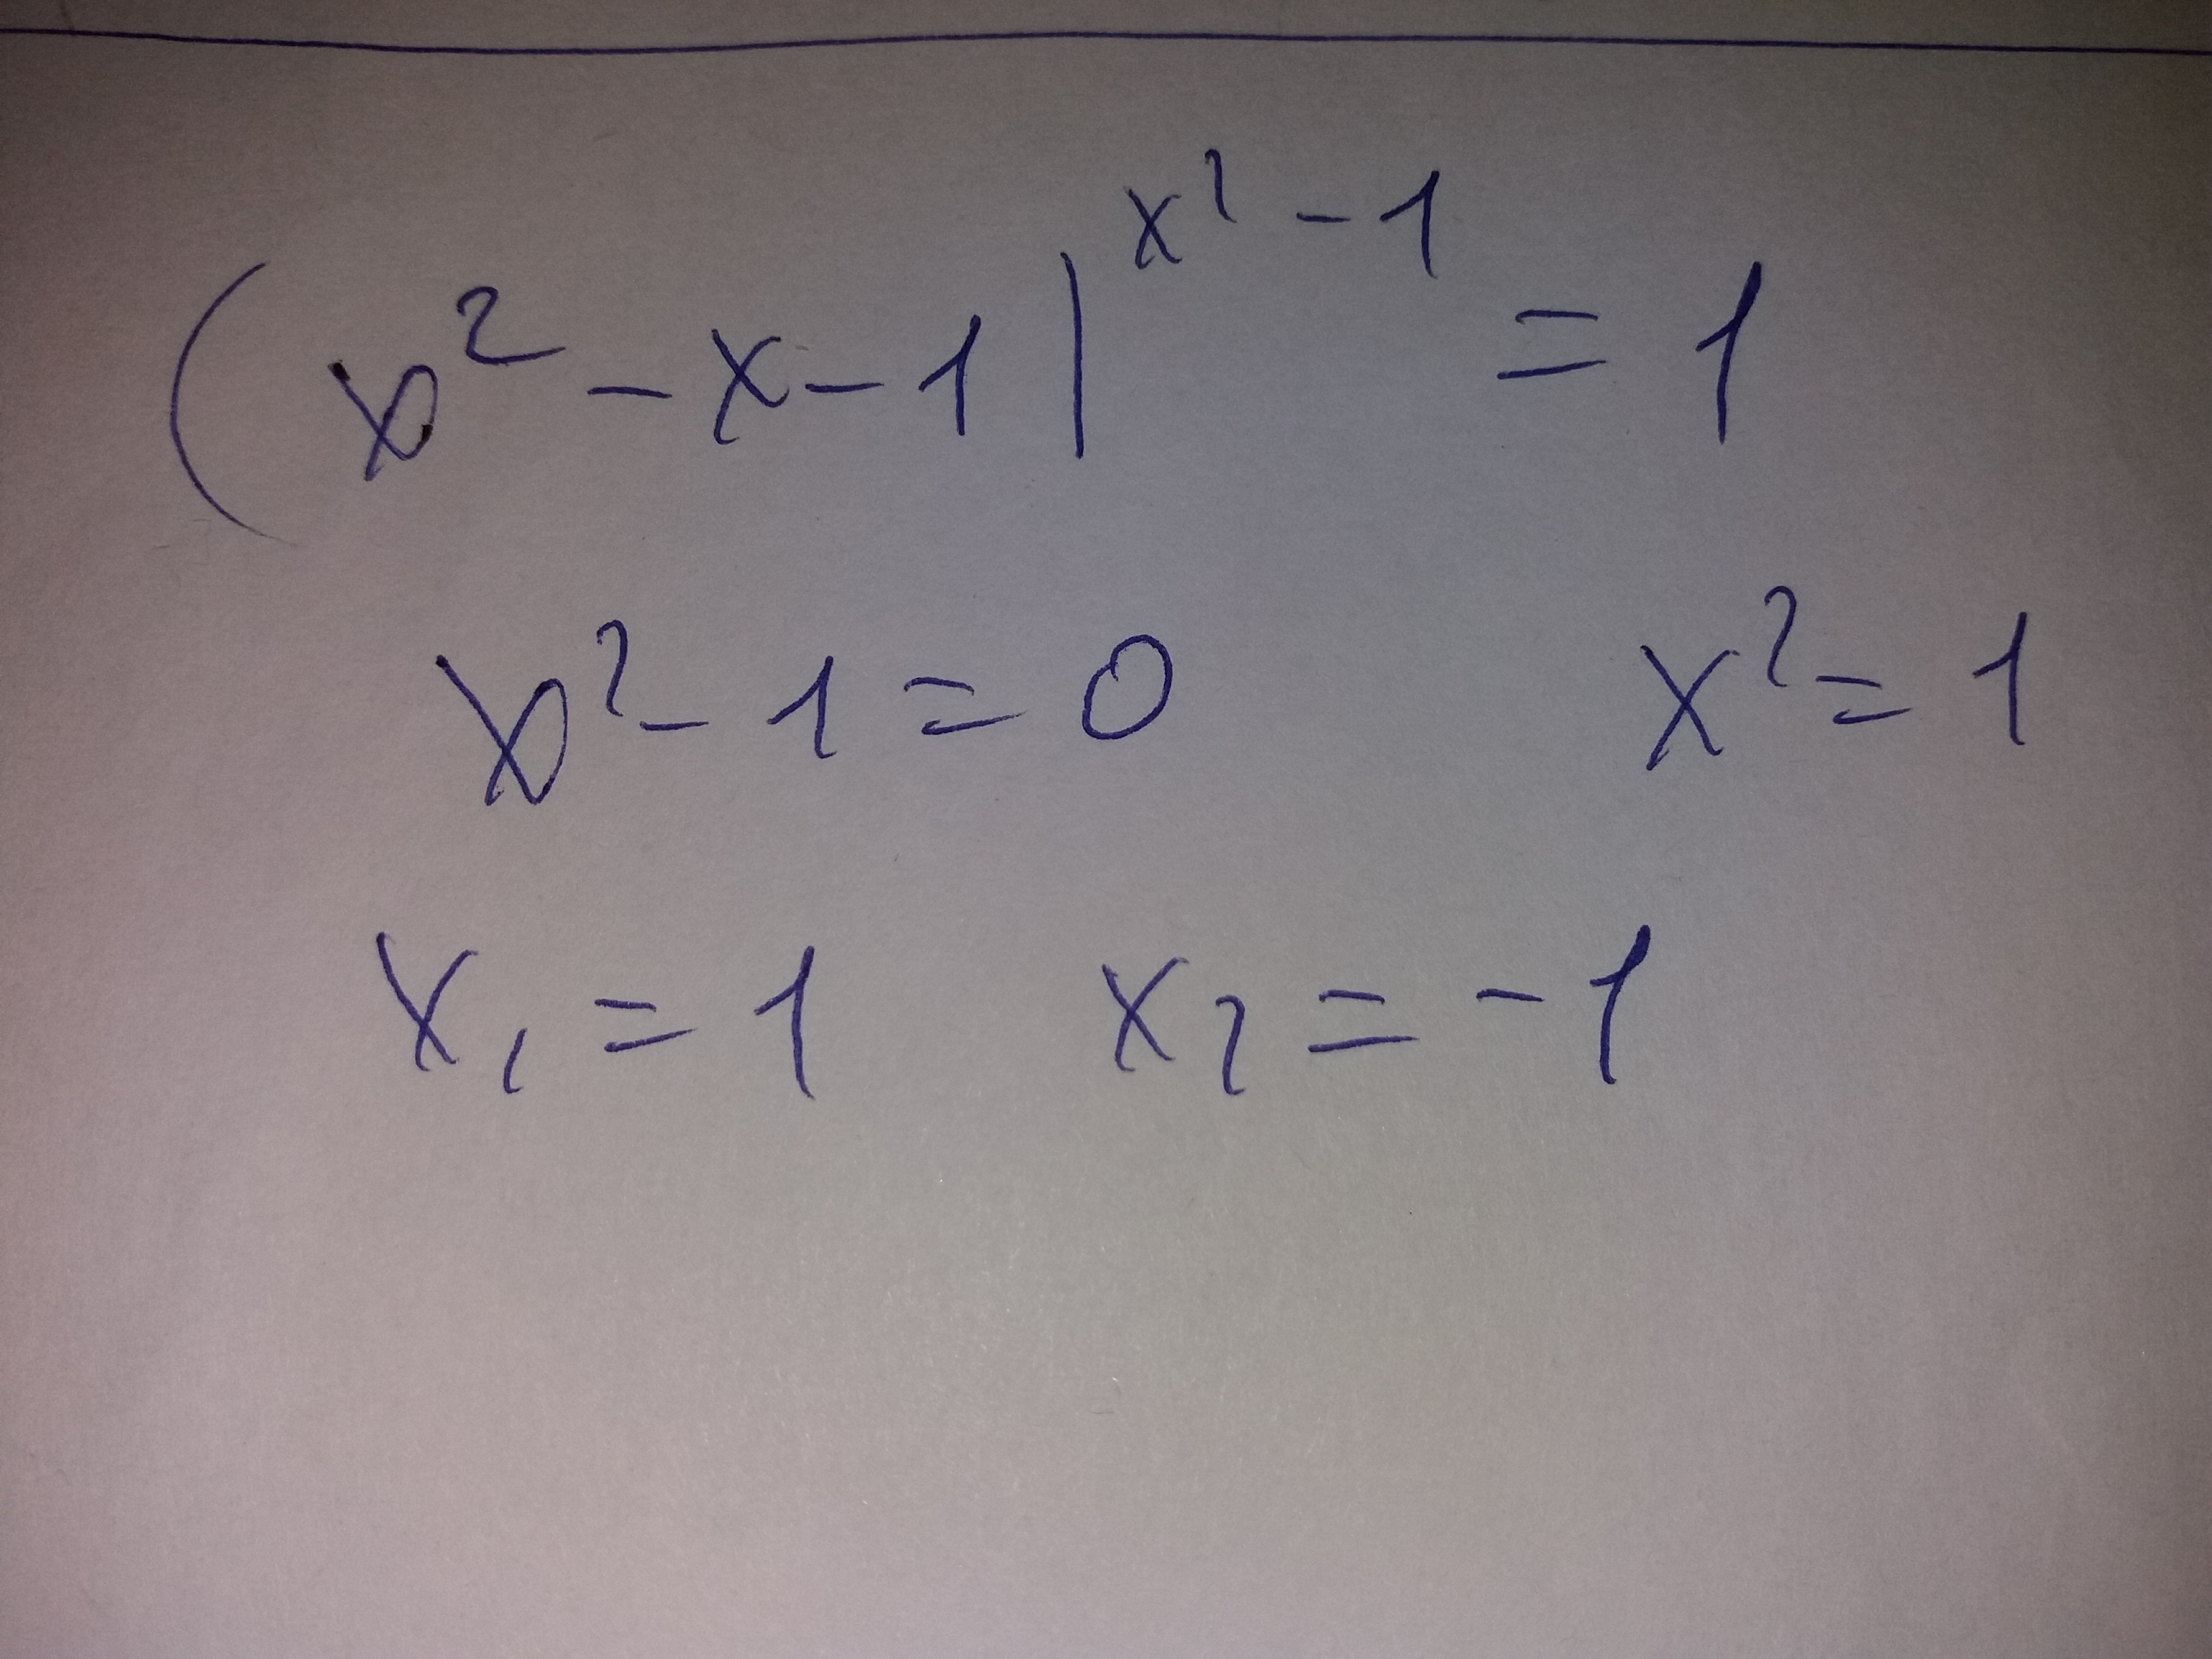 (x² - x - 1)^{x² - 1} = 1
x² - 1 = 0 x² = 1
x₁ = 1 x₂ = -1